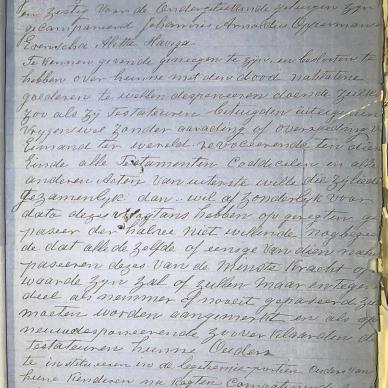 en zestie voor de Ondergeteekende getuigen zyn
gecompareerd Johannes Arnoldus Opperman
Eversocha Aletta Hauga
Te kennen gevende geneegen te zyn en besloten te
hebben over hunne met den dood nalatene
goederen te willen desponeeren doende zulk
zoo als zy Testateuren betuigden uit eigen
vrygen wil zonder aarading of overreeding van
Eimand ter wereld revoceerende ten dien
Einde alle Testamenten Coddicelen en alle
anderen Acten van uiterste wille die zy lied
gezamenlyk dan wel afzonderlyk voor
dato dezes hebben op geregten ge
paseer der halve niet willende nog begee
de dat alle de zelfde of eenege van dien na
paseeren dezes van de Menste Kracht of
waarde zyn zal of zullen maar en tegen
deel als nemmer of nooeit gepaseerd zy
moeten worden aangemerkt en als op
nieuw desponeerende zoo verklaarden de
Testateuren hunne Ouders
te instetueeren in de legetiemie portien Ouders van
hunne Kenderen na Regten Competeerende